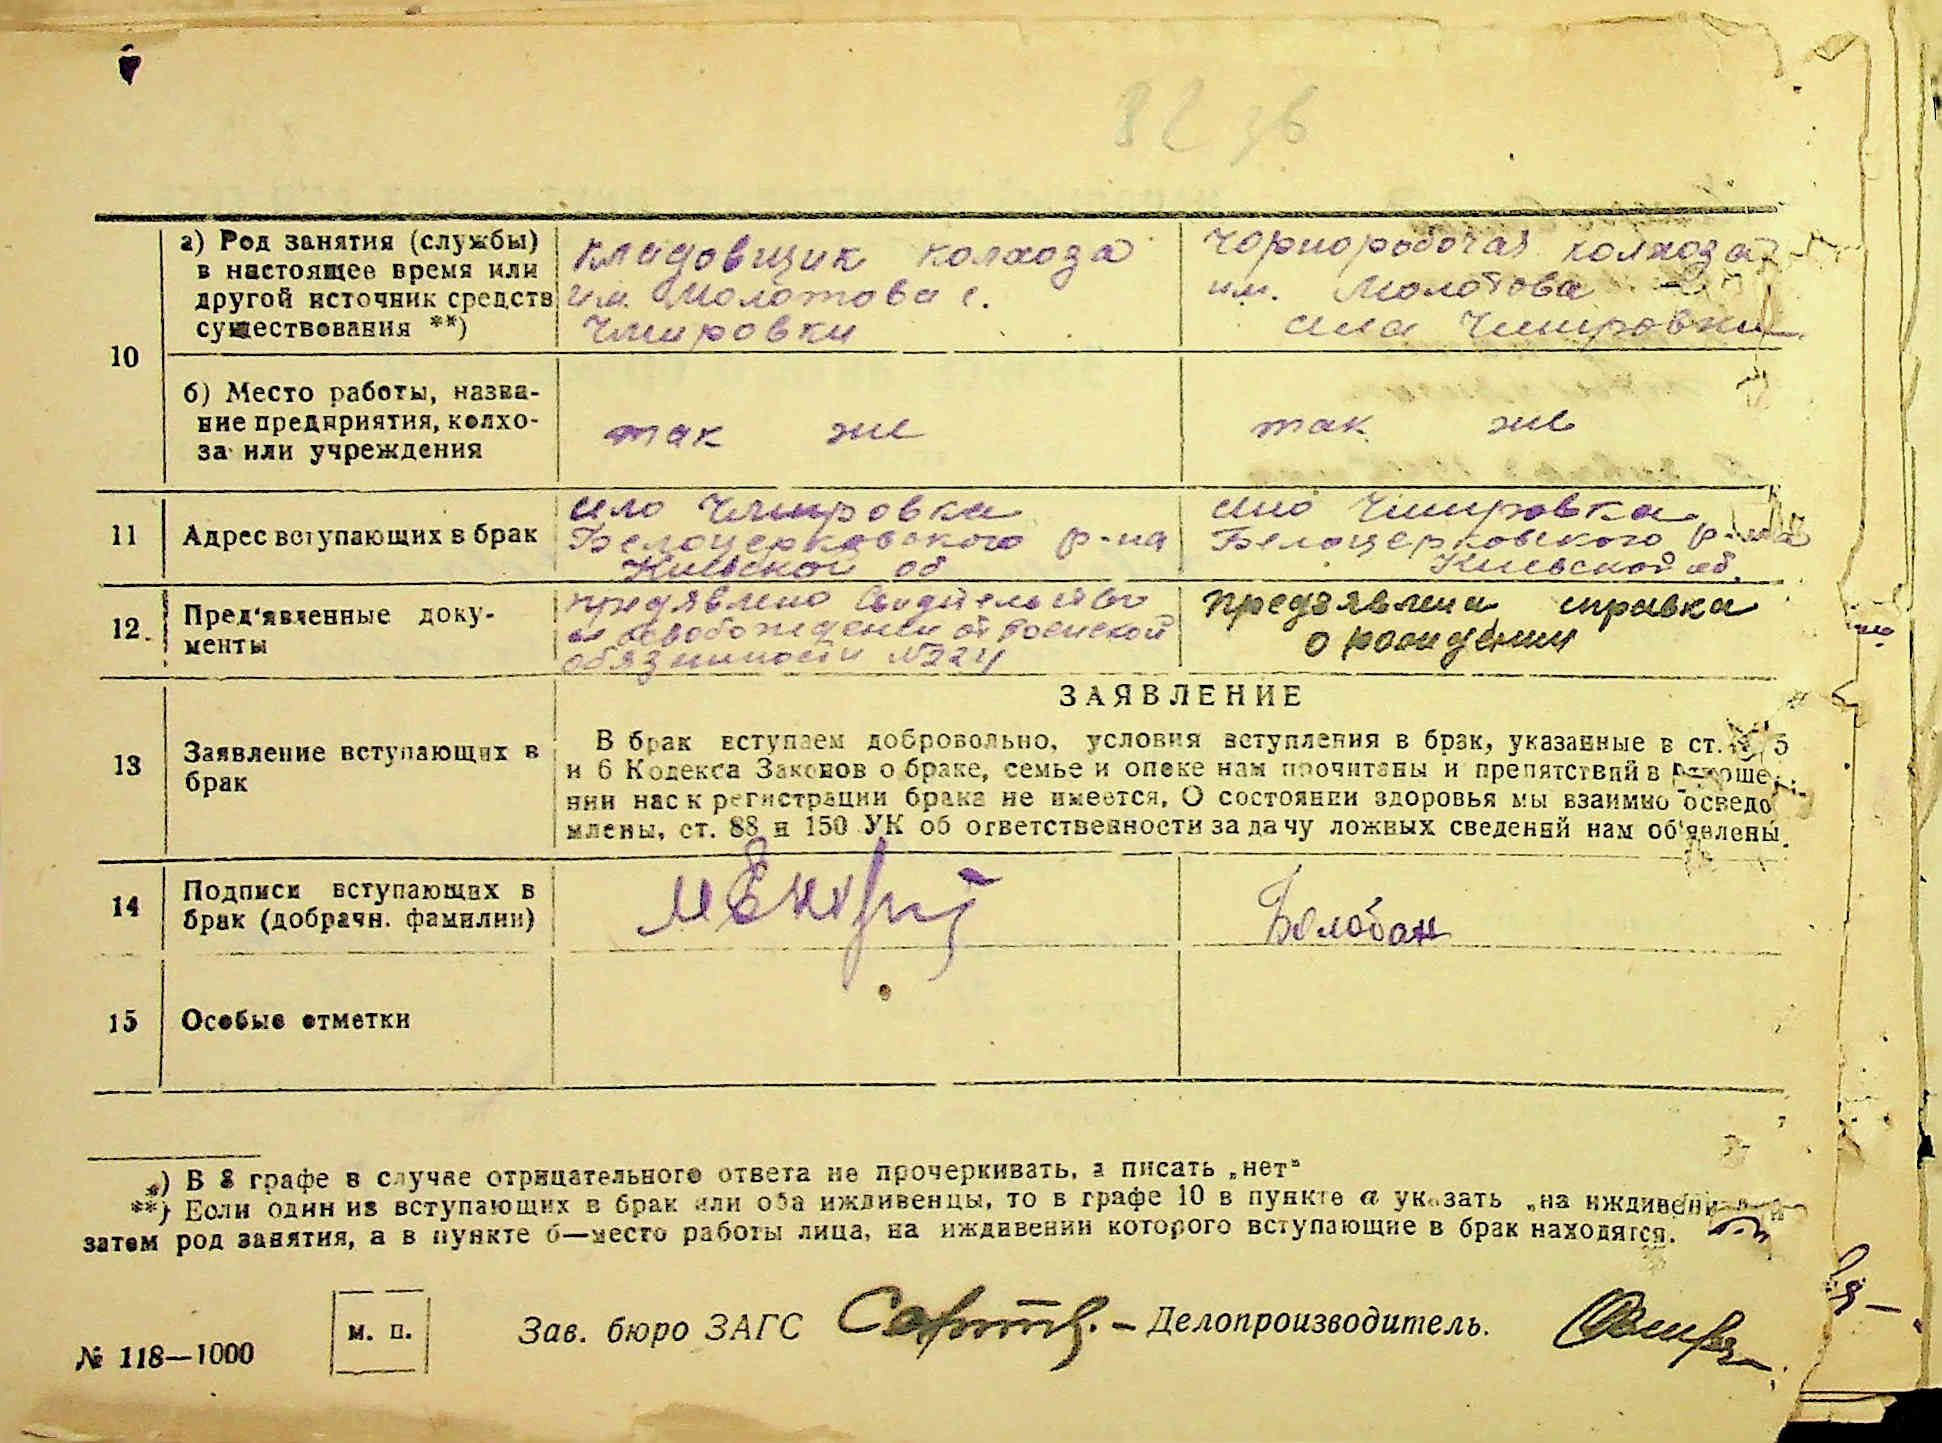 82 зв
10
а) Род занятия (службы)
в настоящее время или
другой источник средств
существования **)
кладовщик колхоза
им. Молотова с.
Чмировки
чорноробочая колхоза
им. Молотова
села Чмировки
б) Место работы, назва-
ние предприятия, колхо-
за или учреждения
так же
так же
11
Адрес вступающих в брак
село Чмировка
Белоцерковского р-на
Киевской об
село Чмировка
Белоцерковского р-на
Киевской об.
12.
Пред'явленные доку-
менты
предявлено
освобождении от воиской
обязанности №224
предявлена справка
о рождении
13
Заявление вступающих в
брак
ЗАЯВЛЕНИЕ
В брак вступаем добровольно, условия вступления в брак, указанные в ст. 5
и 6 Кодекса Законов о браке, семье и опеке нам прочитаны и препятствий в
нии нас к регистрации брака не имеется, О состоянии здоровья мы взаимно осведо
млены, ст. 88 и 150 УК об ответственности за дачу ложных сведений нам об'явлены.
14
Подписи вступающих в
брак (добрачн. фамилии)
Белобан
15
Особые отметки
*) В 8 графе в случае отрицательного ответа не прочеркивать, а писать „нет"
**) Если один из вступающих в брак или оба иждивенцы, то в графе 10 в пункте а указать „на иждивении
затем род занятия, а в пункте б—место работы лица, на иждивении которого вступающие в брак находятся.
№ 118—1000
м. п.
Зав. бюро ЗАГС
— Делопроизводитель.